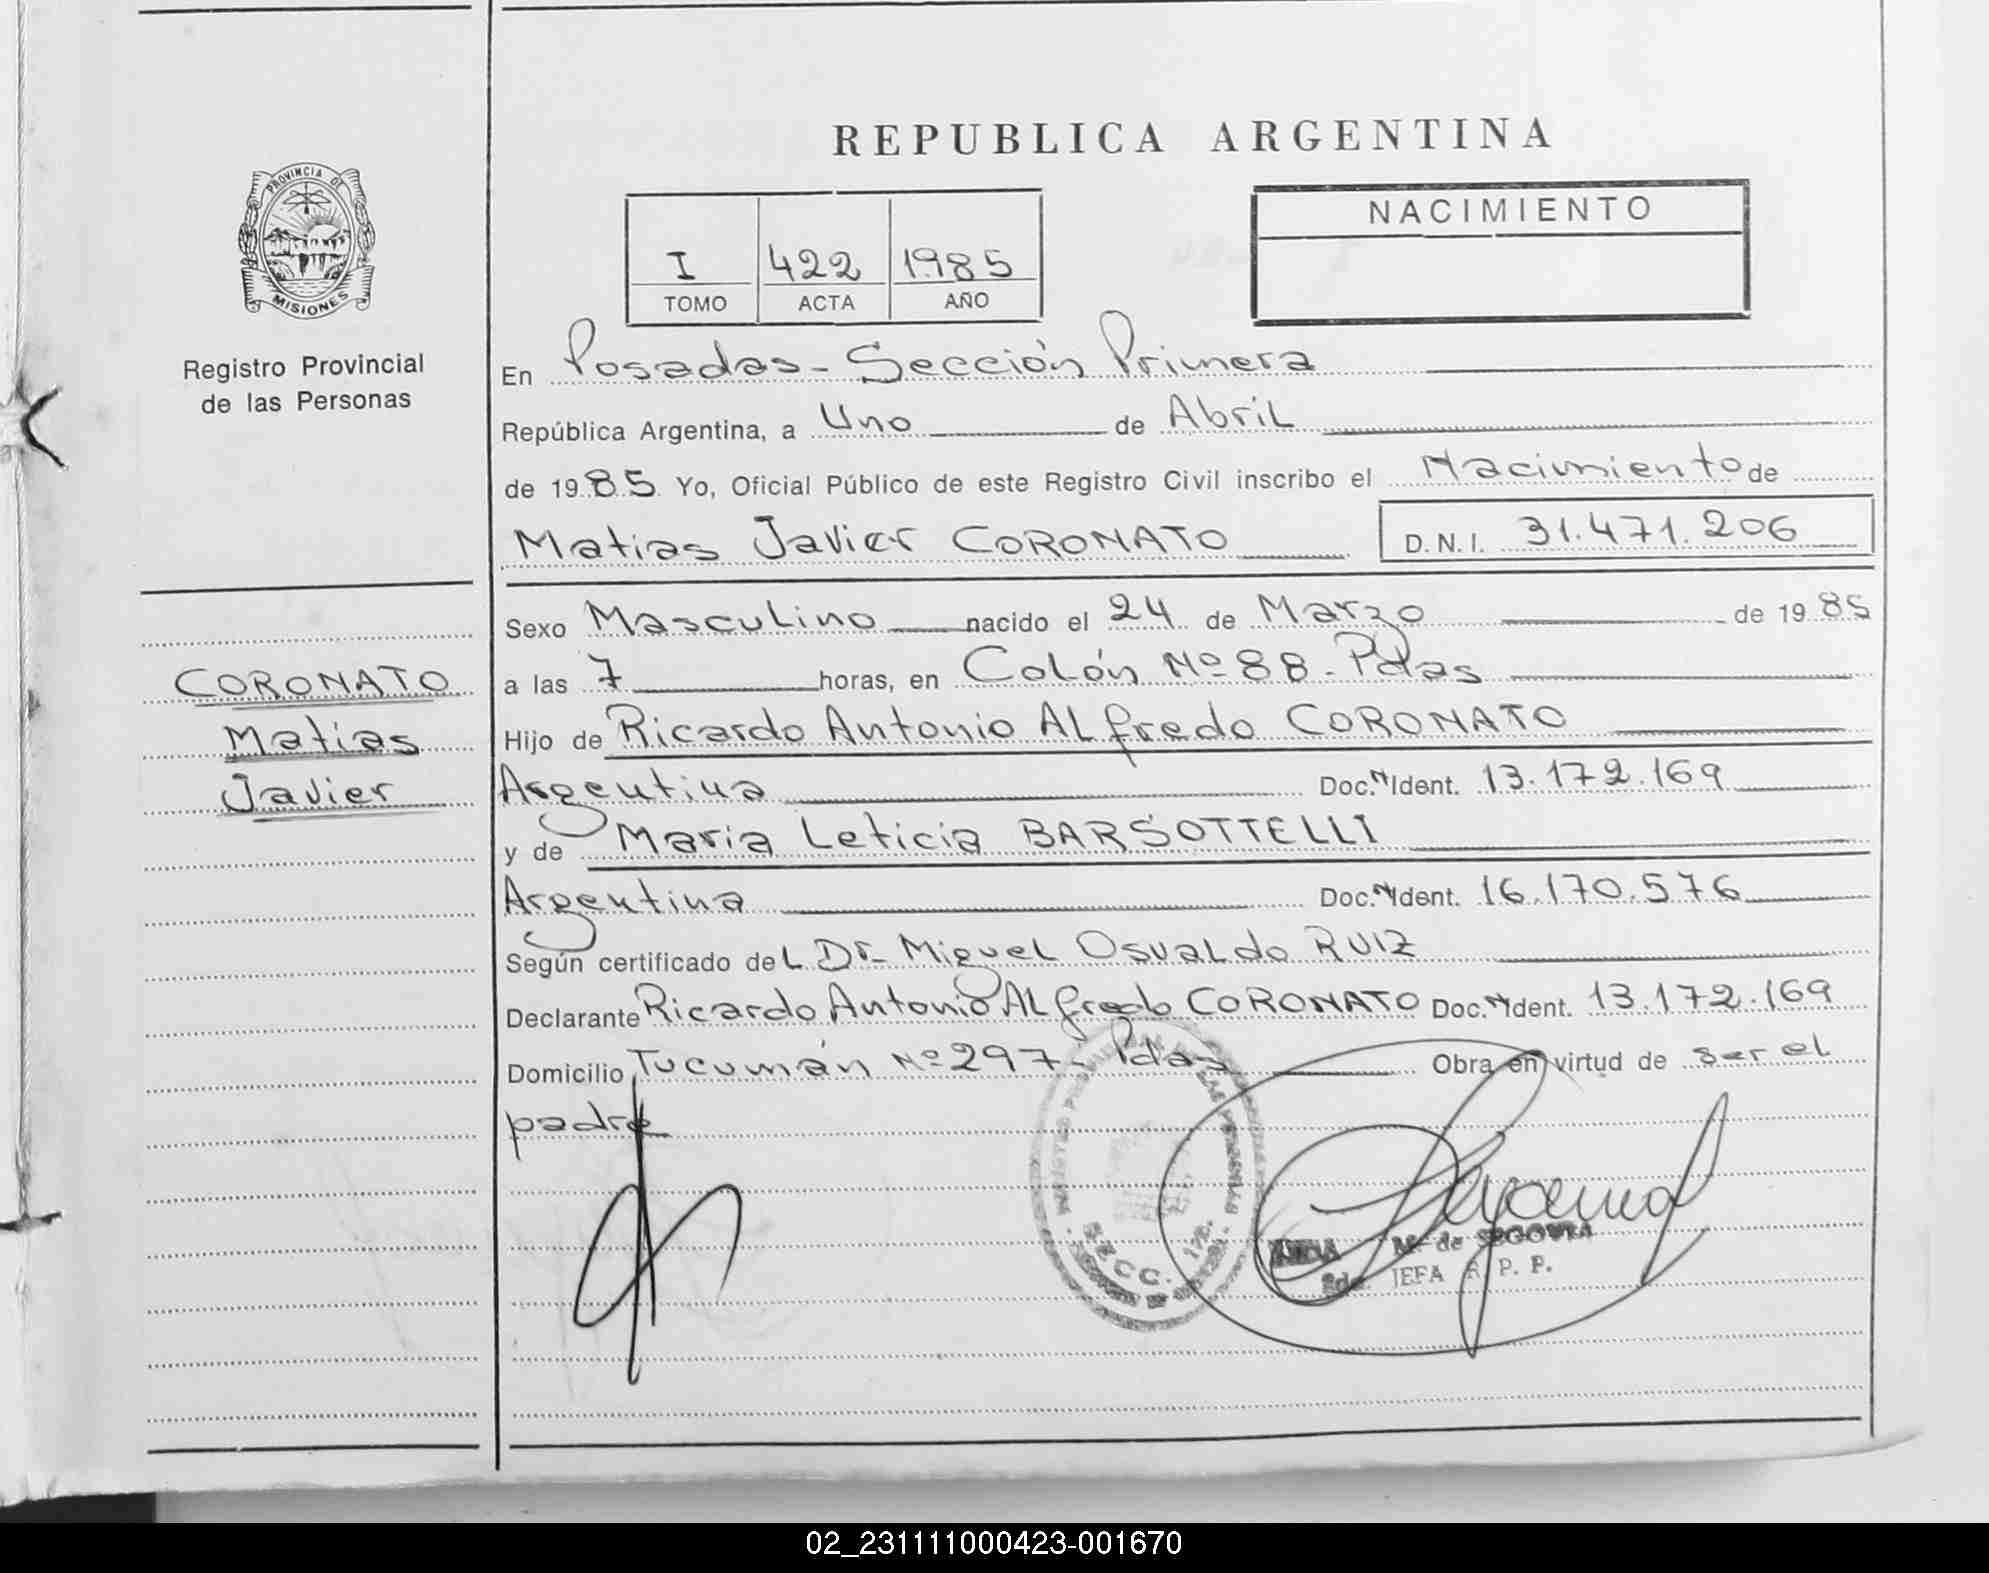 REPUBLICA ARGENTINA
PROVINCIA DE
MISIONES
Registro Provincial
de las Personas
I 422 1985
TOMO ACTA AÑO
NACIMIENTO
En Posadas - Sección Primera
República Argentina, a Uno de Abril
de 1985 Yo, Oficial Público de este Registro Civil inscribo el Nacimiento de
Matias Javier CORONATO D.N.I. 31.471.206
CORONATO
Matías
Javier
Sexo Masculino nacido el 24 de Marzo de 1985
a las 7 horas, en Colón Nº 88 - Pdas
Hijo de Ricardo Antonio Alfredo CORONATO
Argentina Doc. N Ident. 13.172.169
y de Maria Leticia BARSOTTELLI
Argentina Doc. N Ident. 16.170.576
Según certificado del Dr. Miguel Osvaldo RUIZ
Declarante Ricardo Antonio Alfredo CORONATO Doc. N Ident. 13.172.169
Domicilio Tucumán Nº 297 - Pdas Obra en virtud de ser el
padre
SECC. 1ra.
M. de SEGOVIA
JEFA R. P. P.
02_231111000423-001670